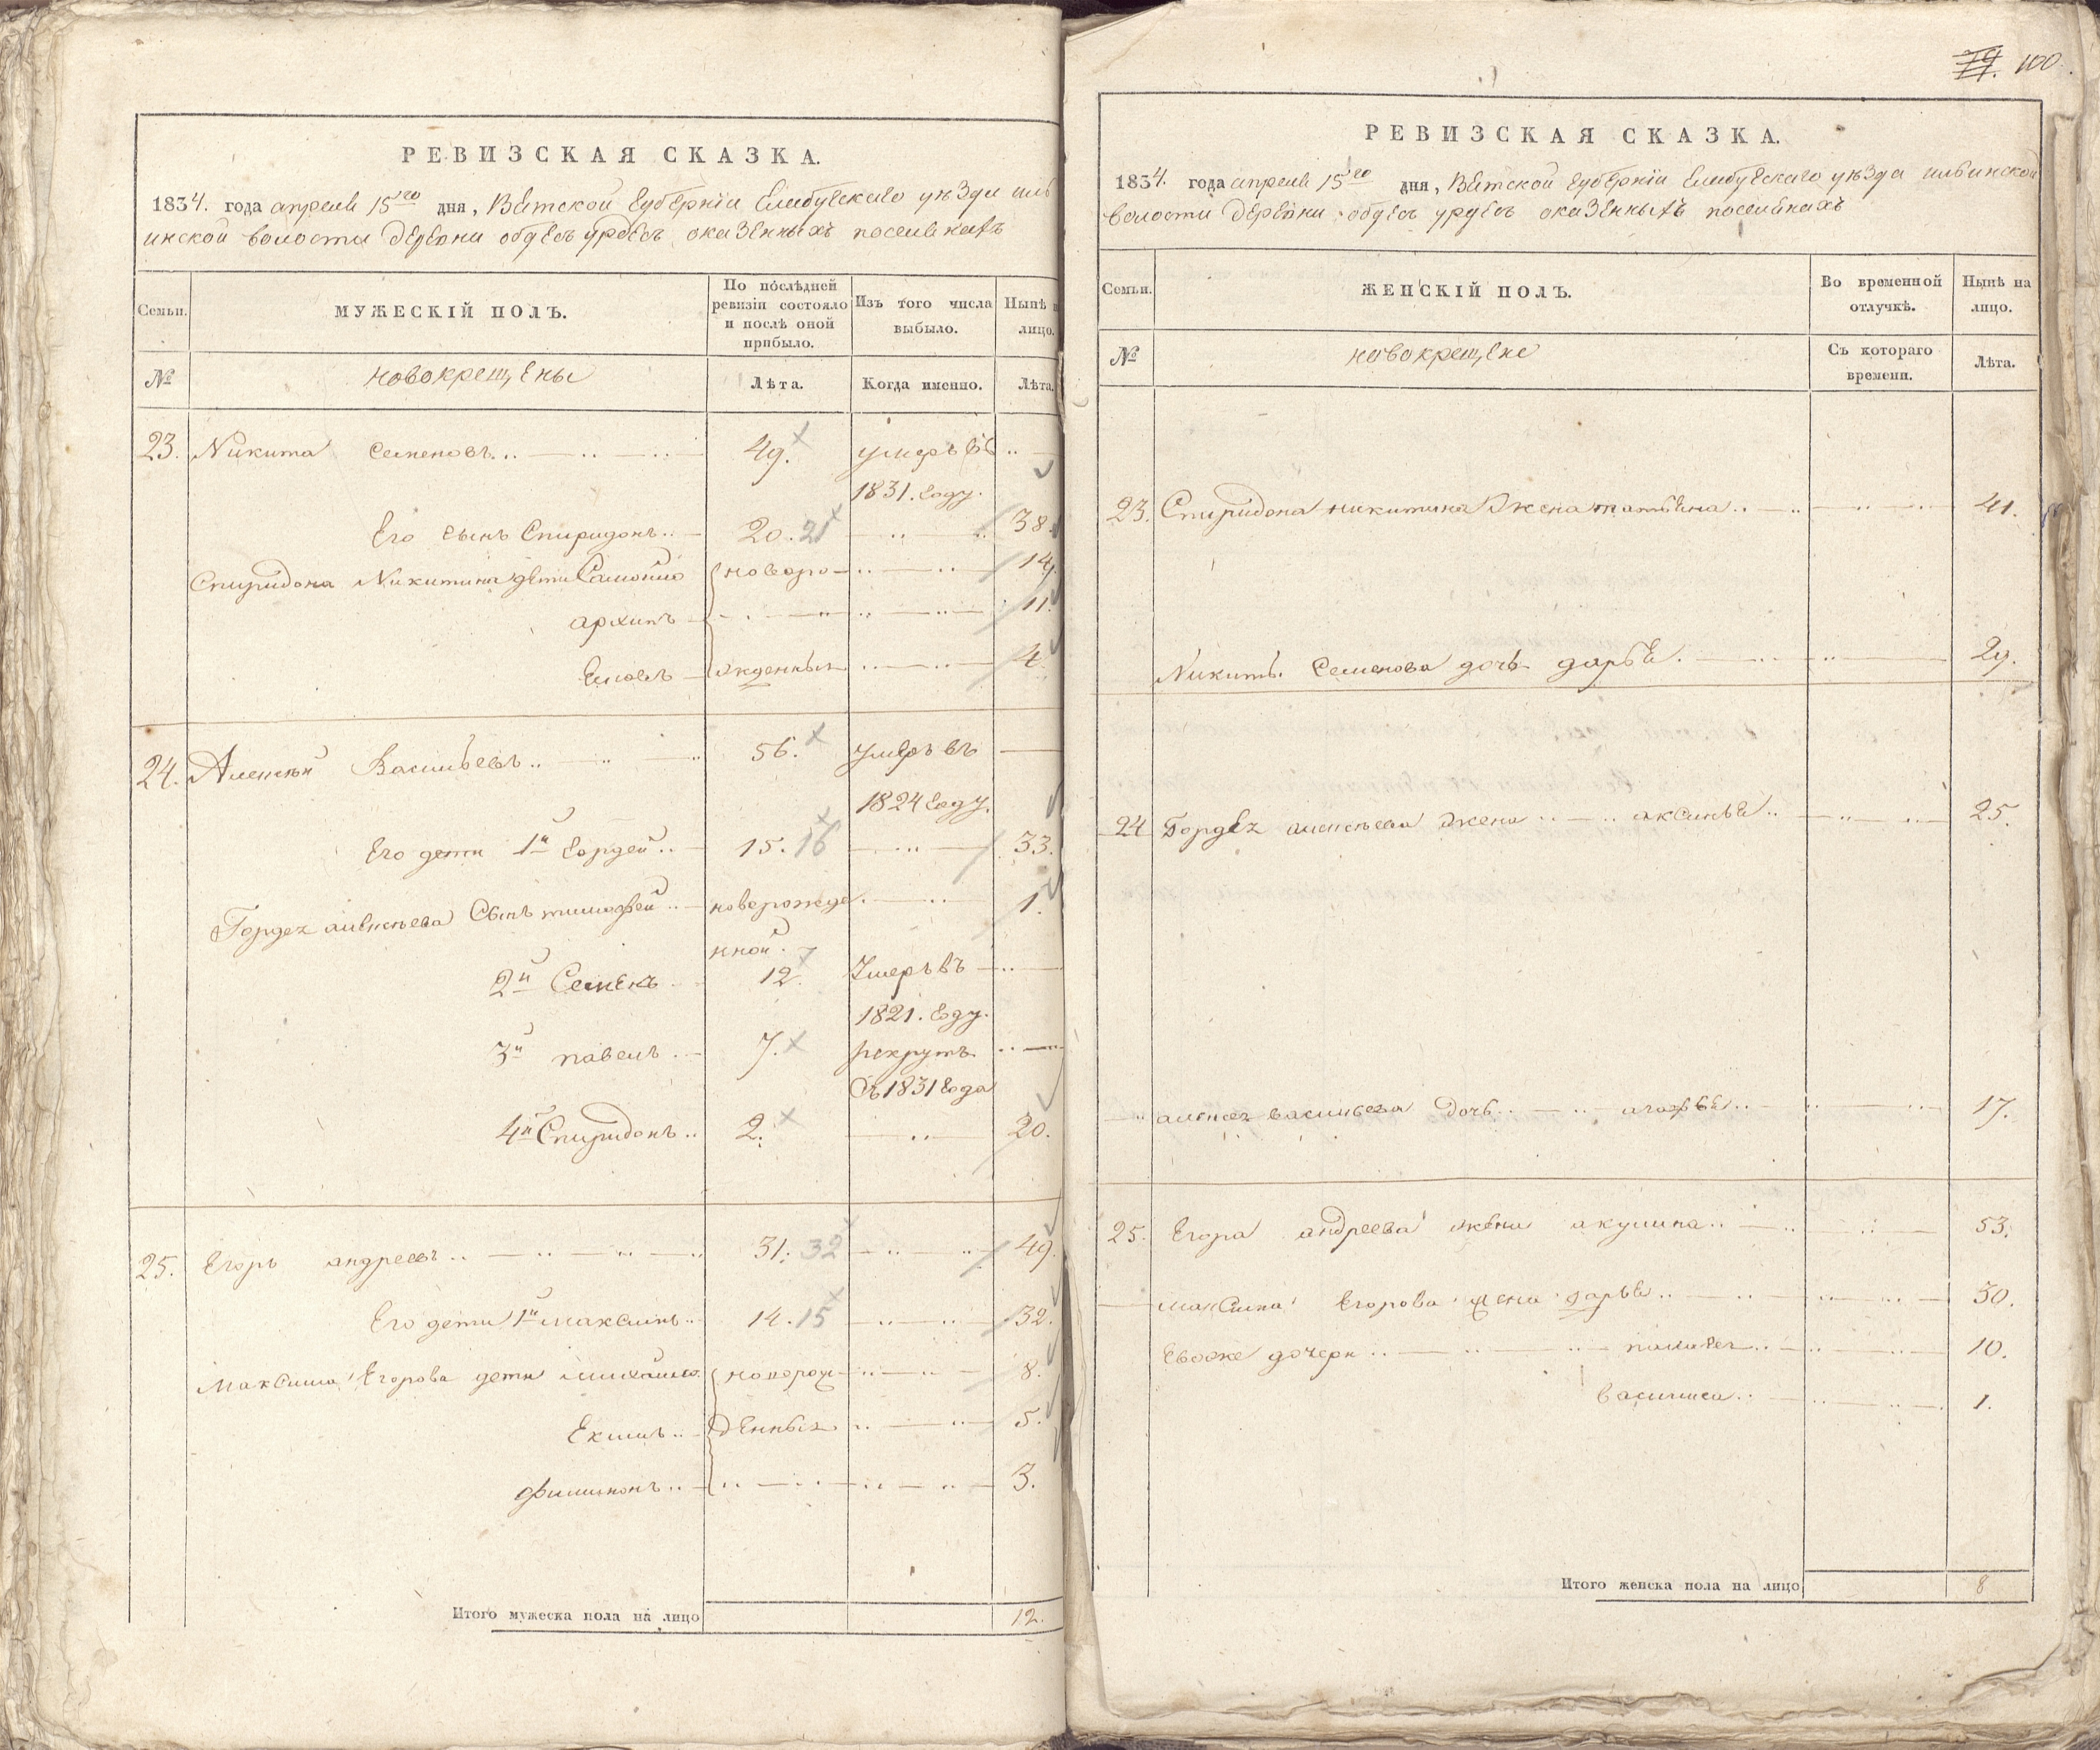 РЕВИЗСКАЯ СКАЗКА.
1834. года апреля 15го дня, Вятской губернiи Елабугскаго уѣзда иль
инской волости деревни
МУЖЕСКIЙ ПОЛЪ.
Семьи.
По послѣдней ревизiи состояло и послѣ оной прибыло.
Изъ того числа выбыло.
Нынѣ
лицо.
№
новокрещены
Лѣта.
Когда именно.
Лѣта.
23. Никита семеновъ 49. умеръ въ
1831. году.
Его сынъ Спиридонъ 20. 21 38.
Спиридона Никитина дети новоро 14.
архипъ 11.
жденныя 4.
24. Алексѣй Васильевъ 56. умеръ въ
1824 году.
Его дети 1й гордей 15. 16 33.
Гордея алексѣева Сынъ тимофей новорожде 1.
нной.
2й Семенъ 12. Умеръ въ
1821. году.
3й павелъ 7. рекрутъ
съ 1831 года
4й Спиридонъ 2. 20.
25. Егоръ андреевъ 31. 32 49.
Его дети 1й максимъ 14. 15 32.
максима Егорова дети михайло новорож 8.
Екимъ денныя 5.
филимонъ 3.
Итого мужеска пола на лицо 12.
100
РЕВИЗСКАЯ СКАЗКА.
1834. года апреля 15го дня, Вятской губернiи Елабугскаго уѣзда ильинской
волости деревни
Семьи.
ЖЕНСКIЙ ПОЛЪ.
Во временной отлучкѣ.
Нынѣ на лицо.
№
новокрещене
Съ котораго времени.
Лѣта.
23. Спиридона никитина жена татьяна 41.
Никиты Семенова дочь дарья 29.
24 Гордея алексѣева жена аксинья 25.
алексея васильева дочь агафья 17.
25. Егора андреева жена акулина 53.
максима Егорова жена дарья 30.
Евоже дочери 10.
василиса 1.
Итого женска пола на лицо 8